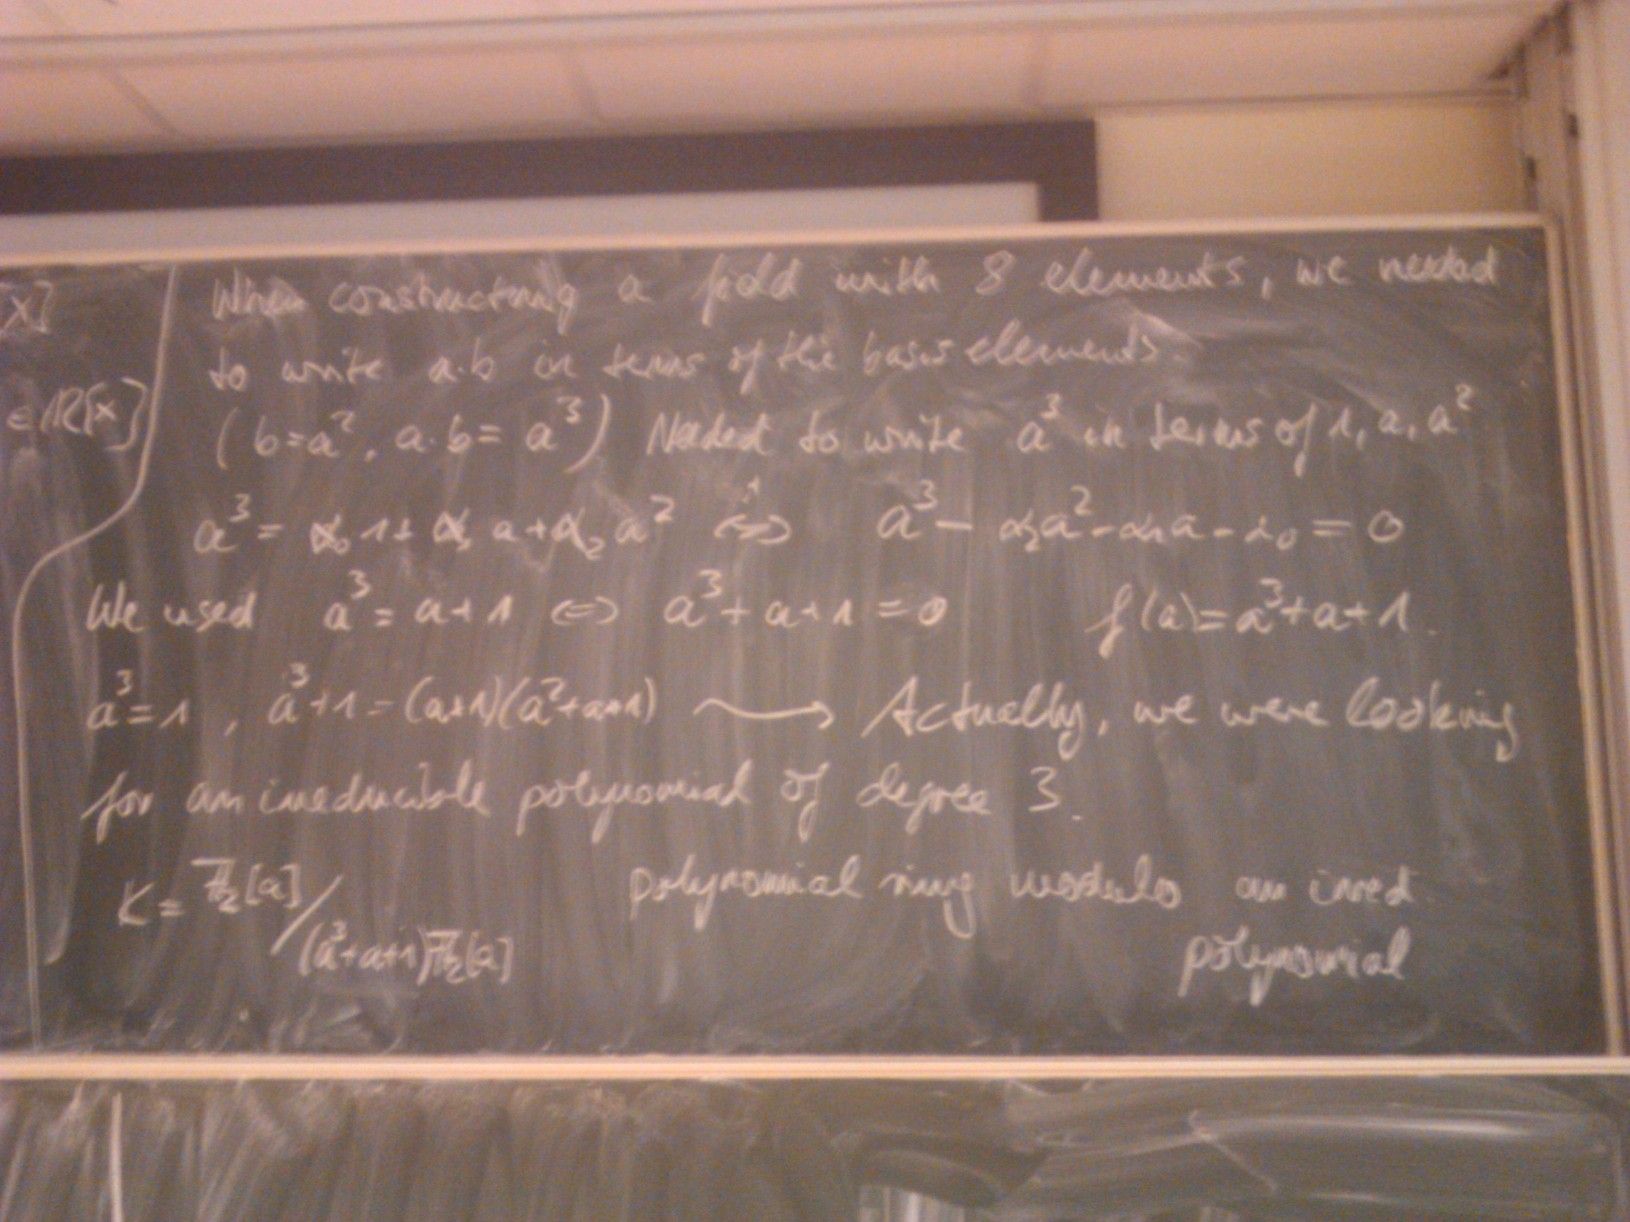 x]
∈ ℝ[x]
When constructing a field with 8 elements, we needed
to write a·b in terms of the basis elements.
(b=a², a·b= a³) Needed to write a³ in terms of 1, a, a²
a³ = α₀ 1+ α₁ a+α₂ a² ⇔ a³ - α₂a² - α₁a - α₀ = 0
We used a³ = a+1 ⇔ a³+a+1 = 0 f(a)=a³+a+1.
a³=1, a³+1=(a+1)(a²+a+1) ⟿ Actually, we were looking
for an irreducible polynomial of degree 3.
K = ℤ₂[a]/(a³+a+1)ℤ₂[a] polynomial ring modulo an irred.
polynomial